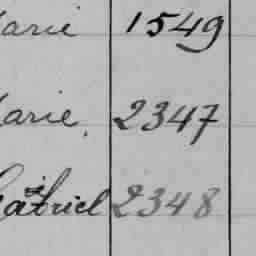 arie 1549
arie 2347
Gabriel 2348